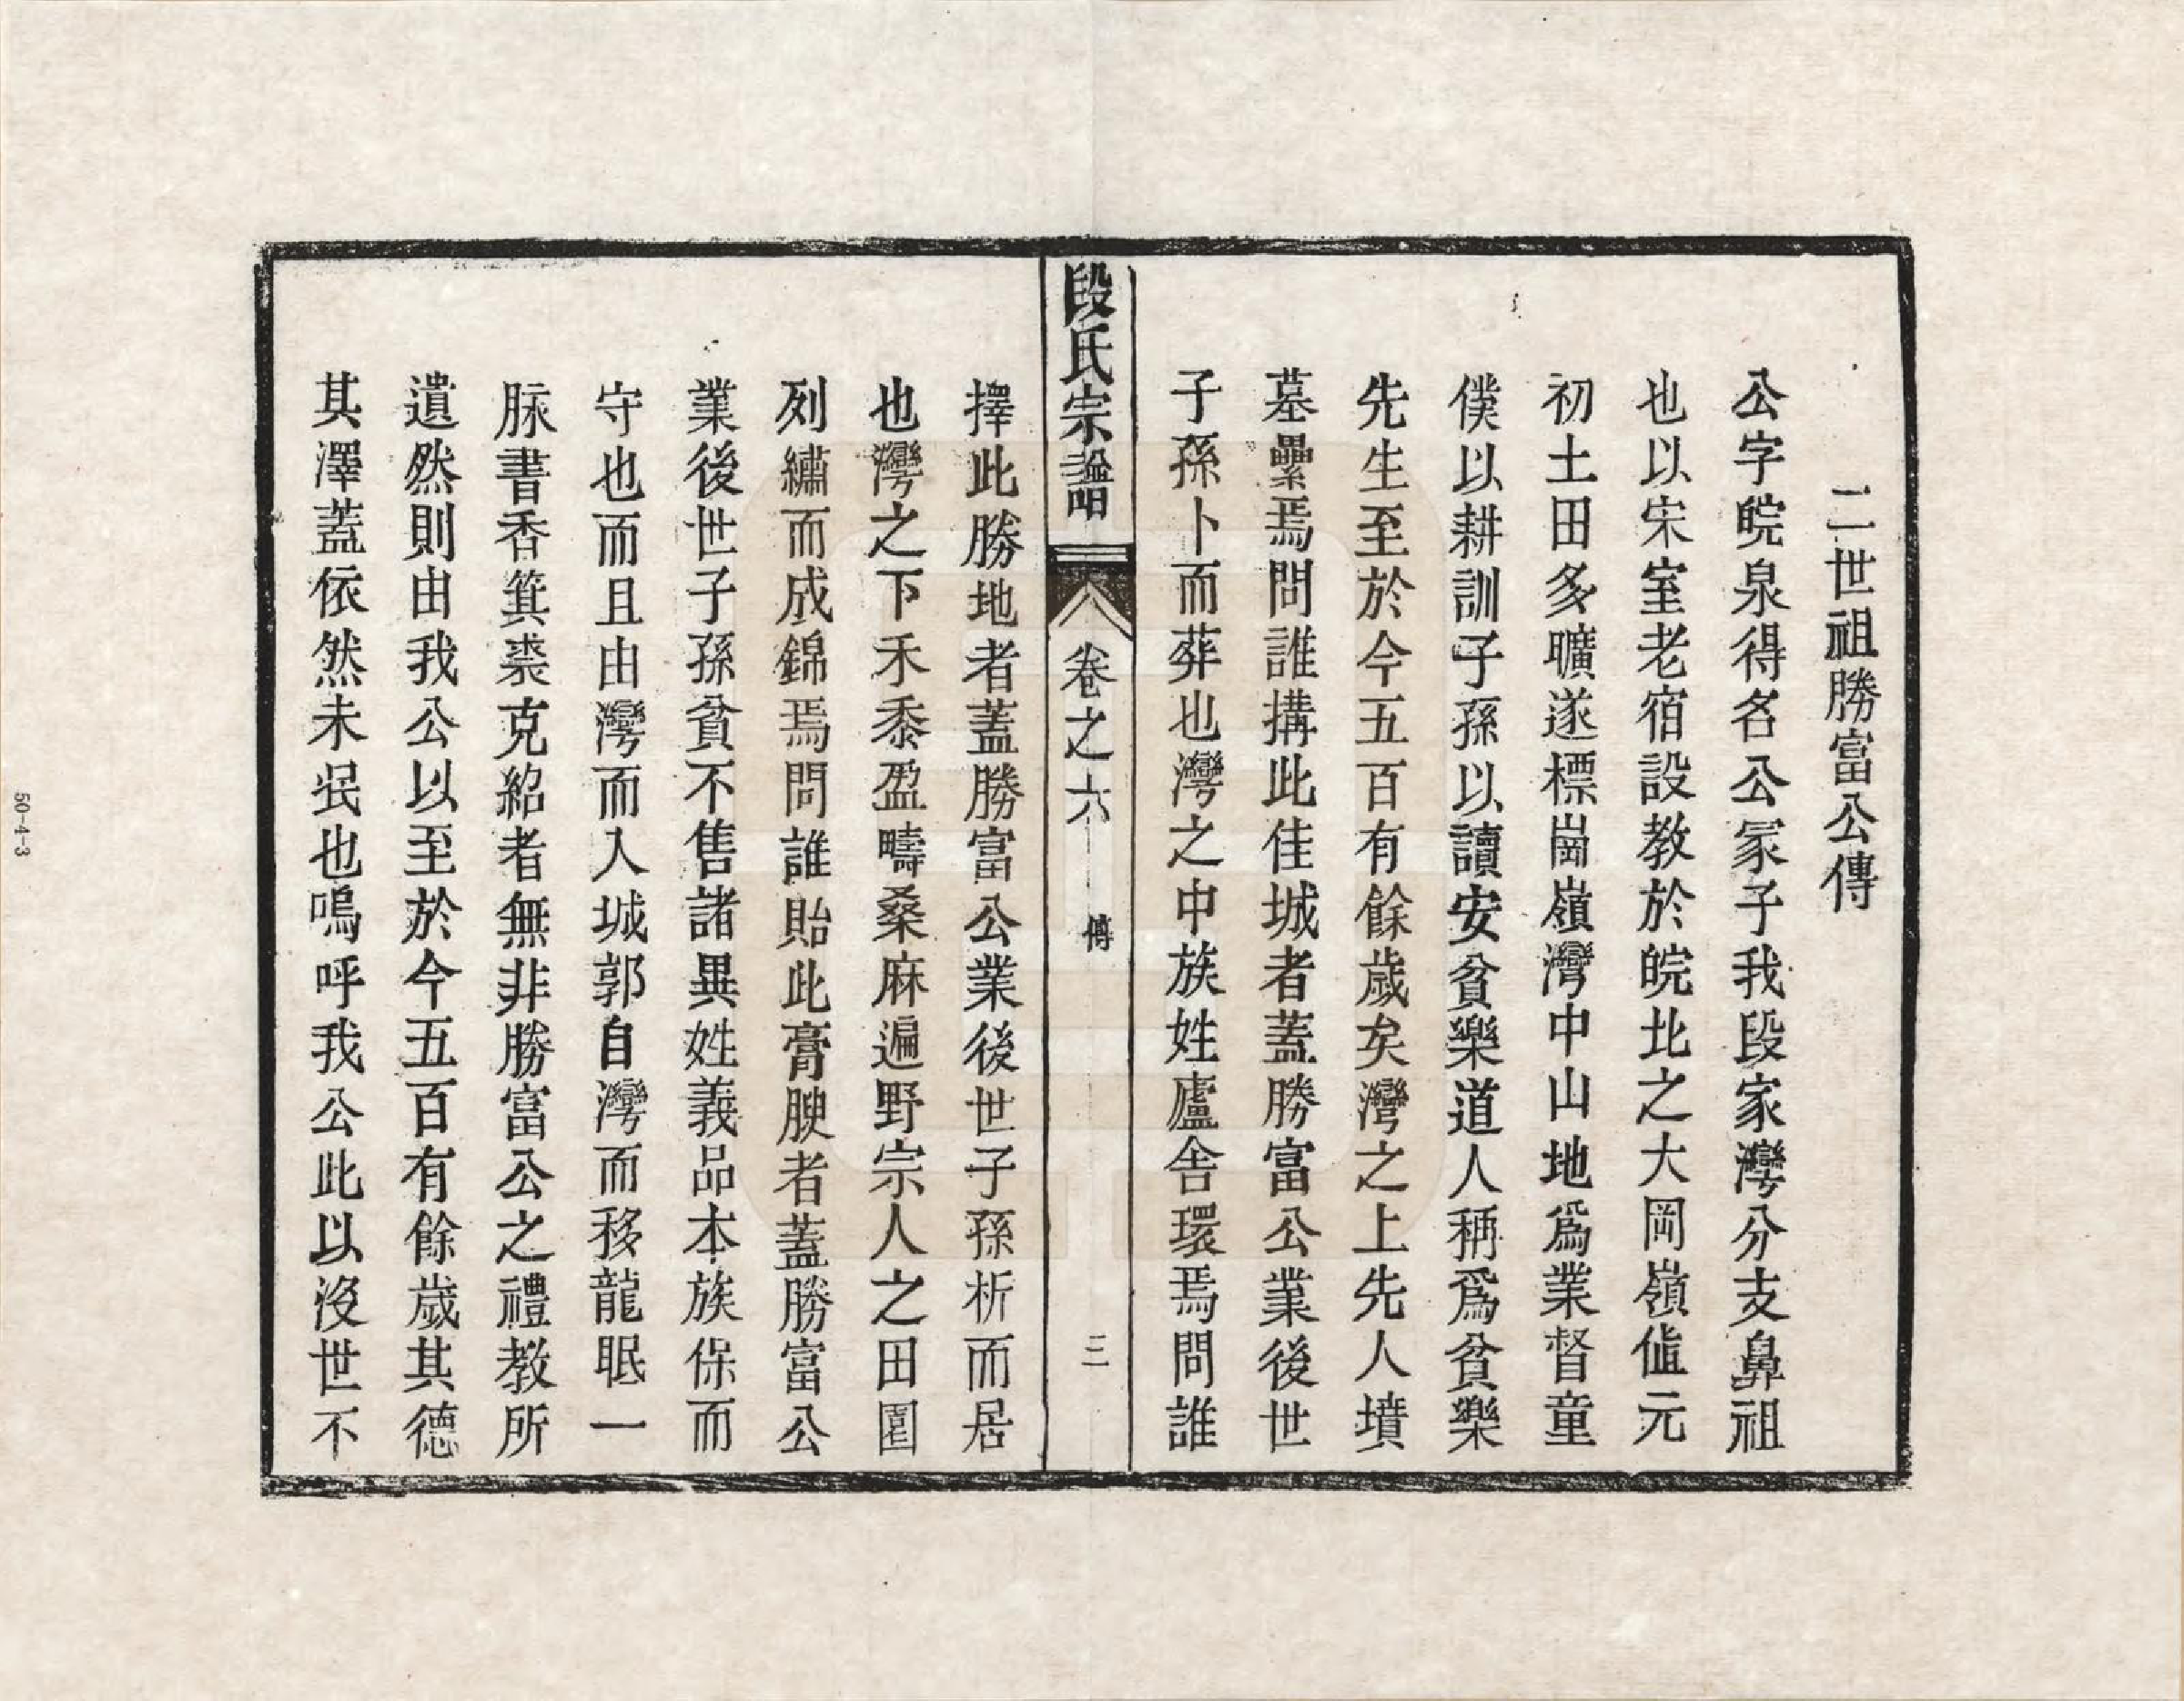 二世祖勝富公傳
公字皖泉得名公冡子我段家灣分支鼻祖
也以宋室老宿設教於皖北之大岡嶺値元
初土田多曠遂標崗嶺灣中山地爲業督童
僕以耕訓子孫以讀安貧樂道人稱爲貧樂
先生至於今五百有餘歲矣灣之上先人墳
墓纍焉問誰搆此佳城者蓋勝富公業後世
子孫卜而葬也灣之中族姓廬舍環焉問誰
段氏宗譜
卷之六
傳
三
擇此勝地者蓋勝富公業後世子孫析而居
也灣之下禾黍盈疇桑麻遍野宗人之田園
列繡而成錦焉問誰貽此膏腴者蓋勝富公
業後世子孫貧不售諸異姓義品本族保而
守也而且由灣而入城郭自灣而移龍眠一
脉書香箕裘克紹者無非勝富公之禮教所
遺然則由我公以至於今五百有餘歲其德
其澤蓋依然未泯也嗚呼我公此以沒世不
50-4-3